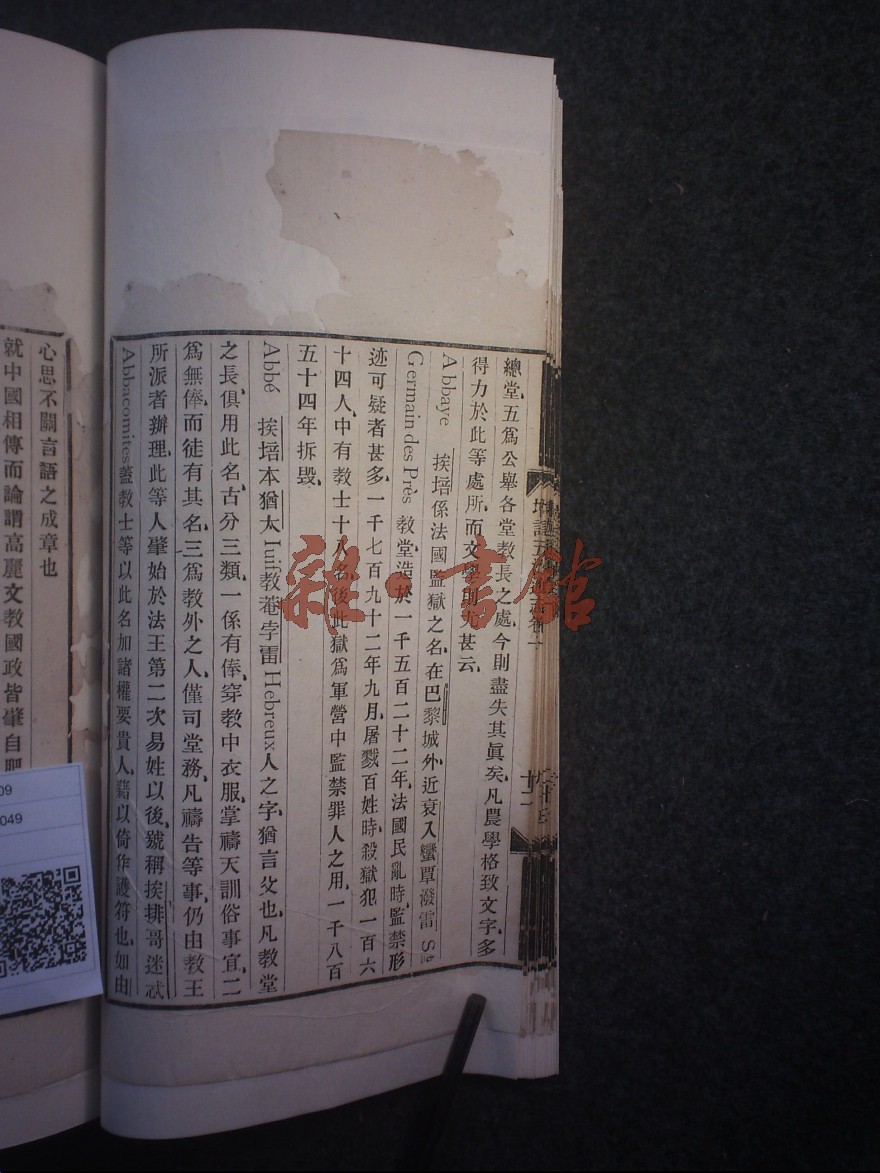 總堂、五爲公舉各堂教長之處、今則盡失其眞矣、凡農學格致文字、多
得力於此等處所、而文學則尤甚云、
Abbaye 挨培係法國監獄之名、在巴黎城外、近衰入蠻覃潑雷 St
Germain des Près 教堂、造於一千五百二十二年、法國民亂時、監禁形
迹可疑者甚多、一千七百九十二年九月、屠戮百姓時、殺獄犯一百六
十四人、中有教士十八名、後此獄爲軍營中監禁罪人之用、一千八百
五十四年拆毀、
Abbé 挨培本猶太 Iuif 教菴孛雷 Hebreux 人之字、猶言父也、凡教堂
之長、俱用此名、古分三類、一係有俸、穿教中衣服、掌禱天訓俗事宜、二
爲無俸、而徒有其名、三爲教外之人、僅司堂務、凡禱告等事、仍由教王
所派者辦理、此等人肇始於法王第二次易姓以後、號稱挨排哥迷忒
Abbacomites 蓋教士等以此名加諸權要貴人、藉以倚作護符也、如由
心思不關言語之成章也
就中國相傳而論謂高麗文教國政皆肇自
雜·書館
09
049